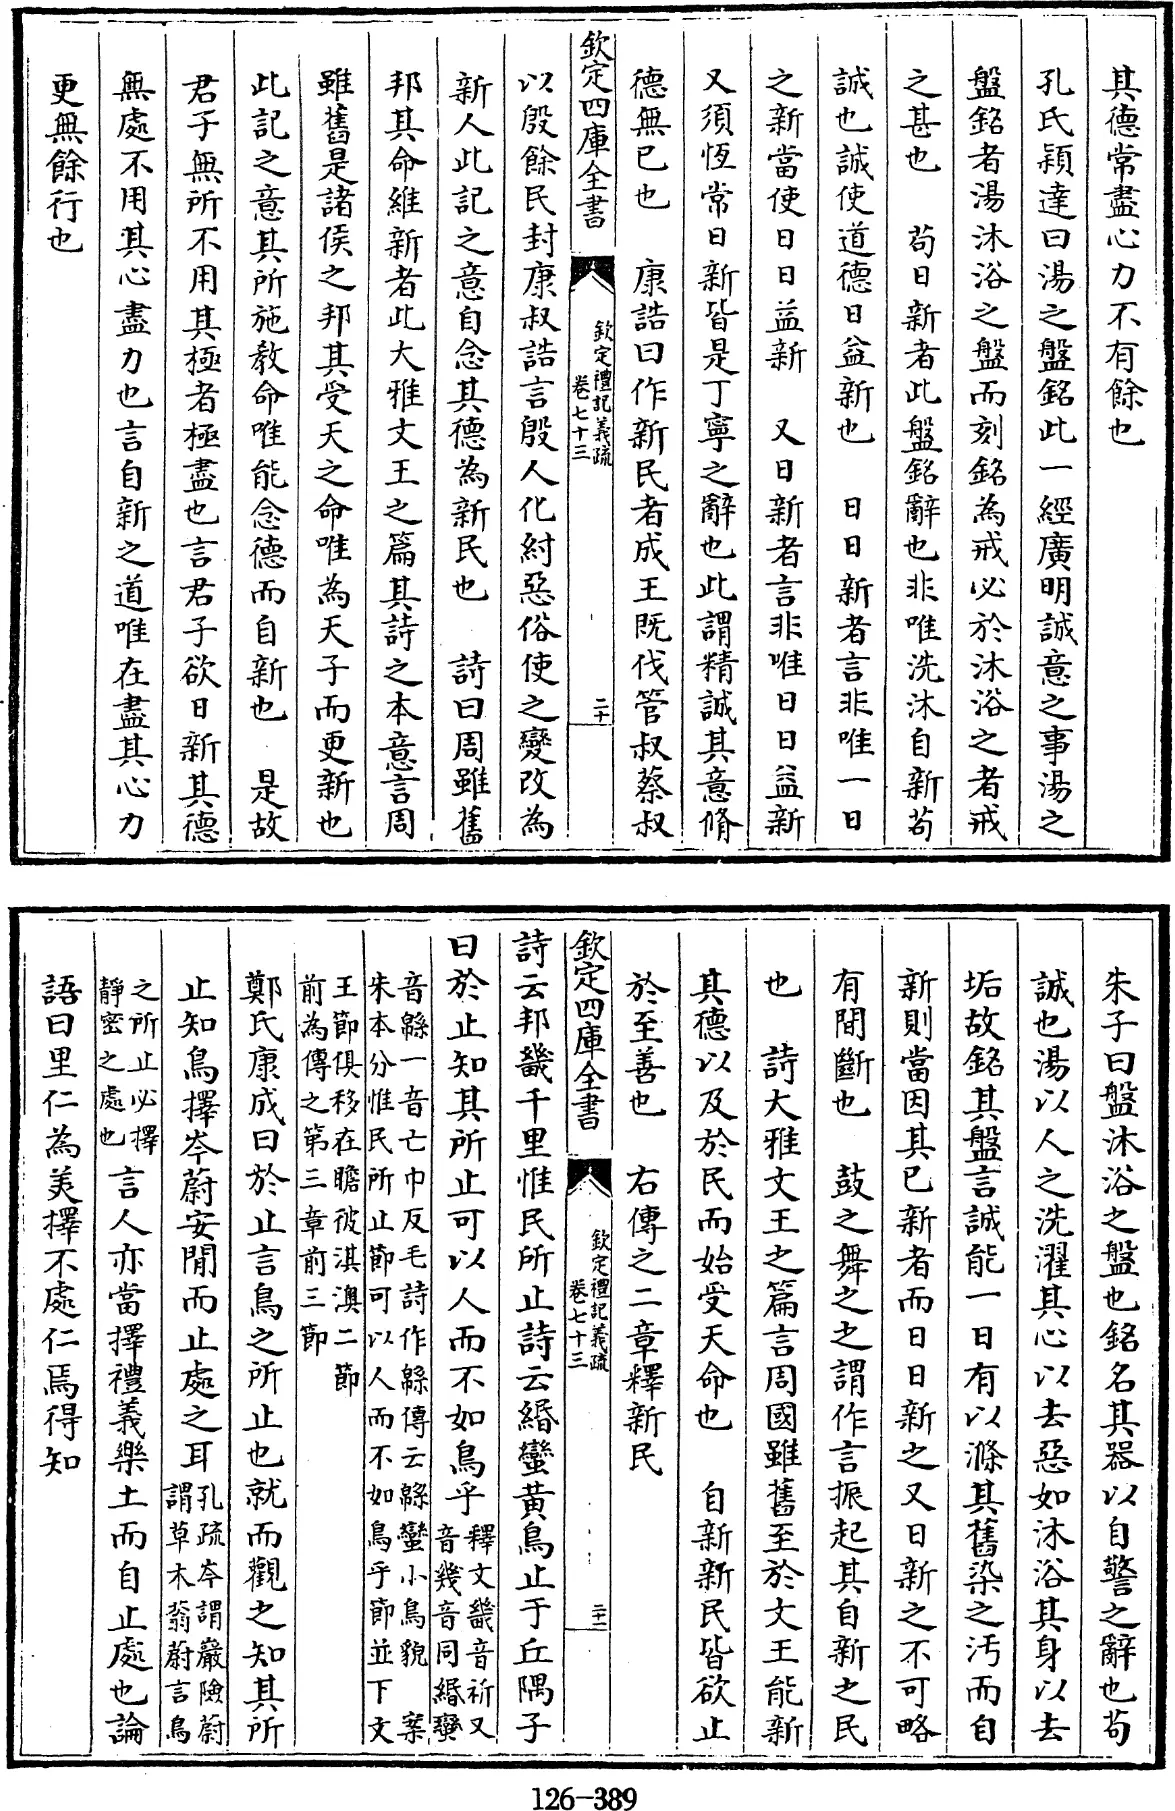 其德常盡心力不有餘也
孔氏穎達曰湯之盤銘此一經廣明誠意之事湯之
盤銘者湯沐浴之盤而刻銘為戒必於沐浴之者戒
之甚也　苟日新者此盤銘辭也非唯洗沐自新苟
誠也誠使道德日益新也　日日新者言非唯一日
之新當使日日益新　又日新者言非唯日日益新
又須恆常日新皆是丁寧之辭也此謂精誠其意脩
德無已也　康誥曰作新民者成王既伐管叔蔡叔
欽定四庫全書
欽定禮記義疏
卷七十三
二十
以殷餘民封康叔誥言殷人化紂惡俗使之變改為
新人此記之意自念其德為新民也　詩曰周雖舊
邦其命維新者此大雅文王之篇其詩之本意言周
雖舊是諸侯之邦其受天之命唯為天子而更新也
此記之意其所施教命唯能念德而自新也　是故
君子無所不用其極者極盡也言君子欲日新其德
無處不用其心盡力也言自新之道唯在盡其心力
更無餘行也
朱子曰盤沐浴之盤也銘名其器以自警之辭也苟
誠也湯以人之洗濯其心以去惡如沐浴其身以去
垢故銘其盤言誠能一日有以滌其舊染之汚而自
新則當因其已新者而日日新之又日新之不可略
有間斷也　鼓之舞之之謂作言振起其自新之民
也　詩大雅文王之篇言周國雖舊至於文王能新
其德以及於民而始受天命也　自新新民皆欲止
於至善也　右傳之二章釋新民
欽定四庫全書
欽定禮記義疏
卷七十三
二十一
詩云邦畿千里惟民所止詩云緡蠻黃鳥止于丘隅子
曰於止知其所止可以人而不如鳥乎
釋文畿音祈又
音幾音同緡蠻
音緜一音亡巾反毛詩作緜傳云緜蠻小鳥貌　案
朱本分惟民所止節可以人而不如鳥乎節並下文
王節俱移在瞻彼淇澳二節
前為傳之第三章前三節
鄭氏康成曰於止言鳥之所止也就而觀之知其所
止知鳥擇岑蔚安閒而止處之耳
孔疏岑謂巖險蔚
謂草木蓊蔚言鳥
之所止必擇
靜密之處也
言人亦當擇禮義樂土而自止處也論
語曰里仁為美擇不處仁焉得知
126-389